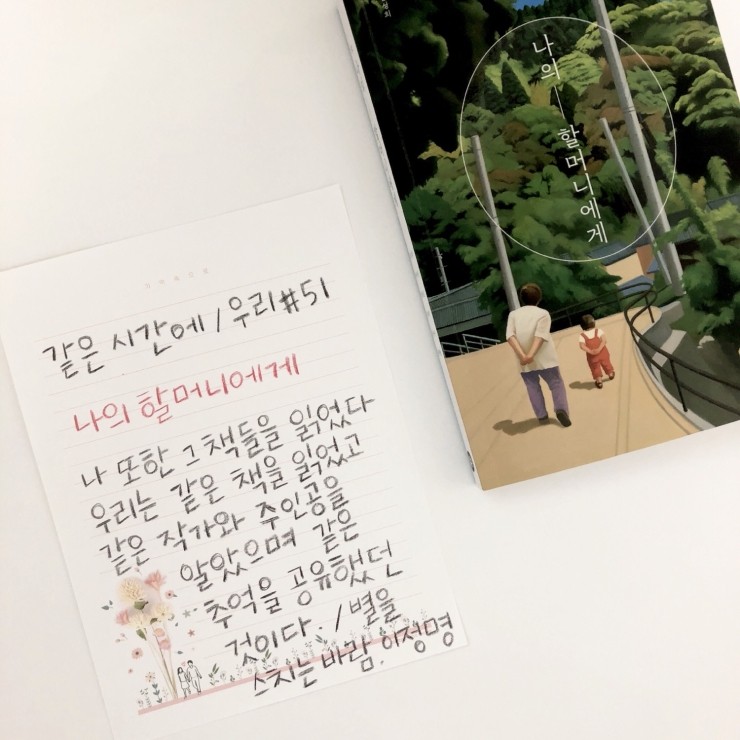 같은 시간에 / 우리 #51
나의 할머니에게
나 또한 그 책들을 읽었다
우리는 같은 책을 읽었고
같은 작가와 주인공을
알았으며 같은
추억을 공유했던
것이다. / 별을
스치는 바람, 이정명
나의
할머니에게